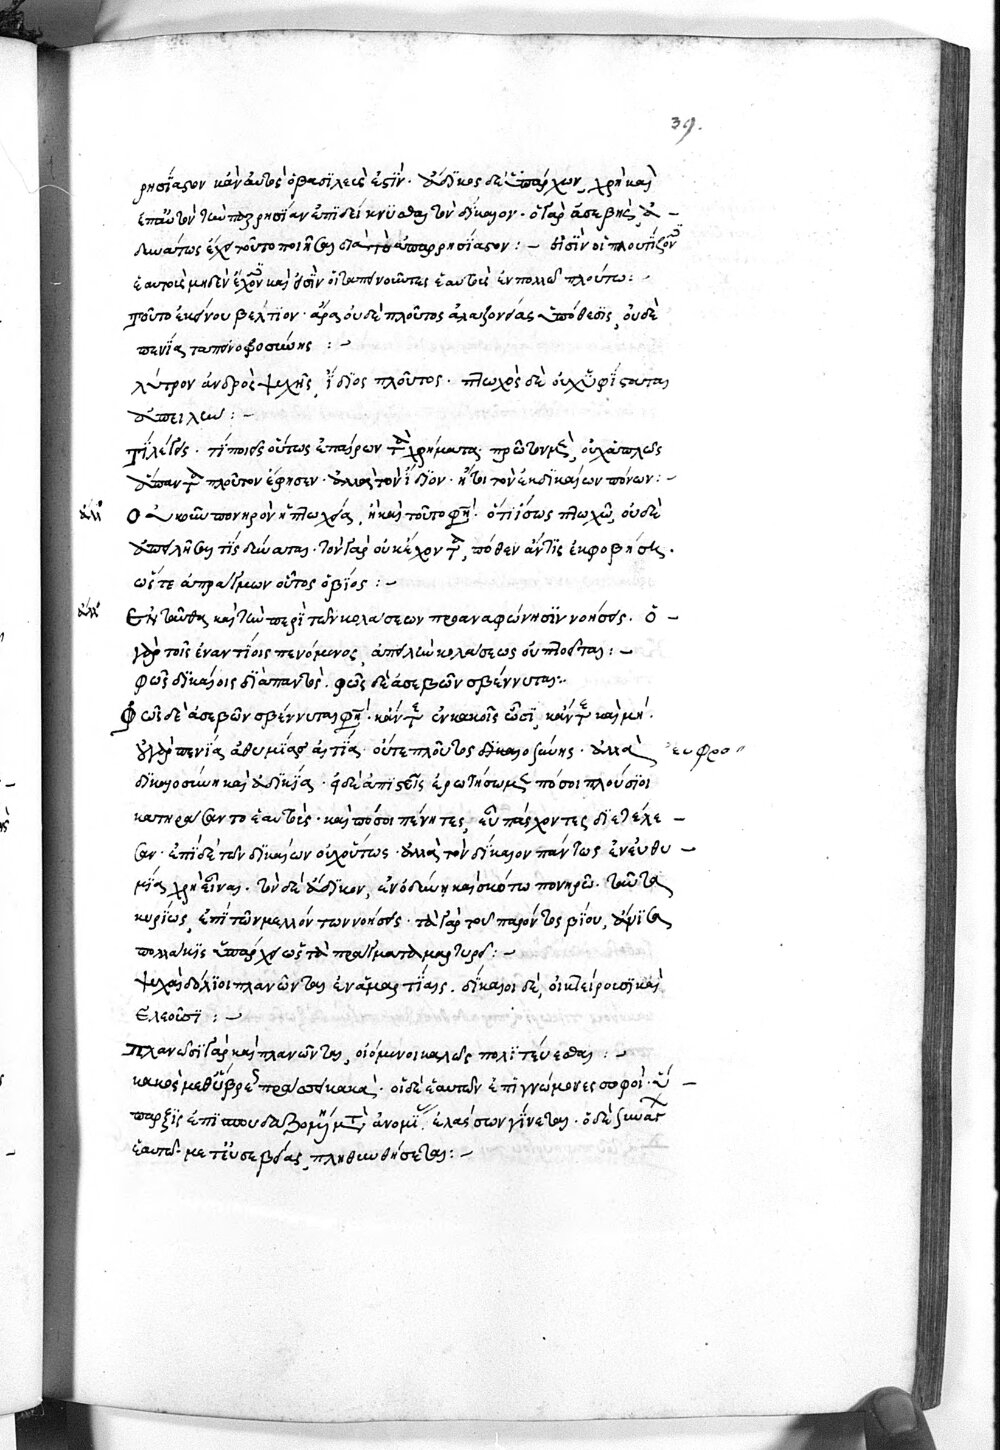 39.
ρησίαστον κἂν αὐτὸς ὁ βασϊλεὺς ἐστὶν· ἄδϊκος δὲ ὑπάρχων, χρὴ καὶ
ἐπ' αὐτὸν τὴν παρρησίαν ἐπιδείκνυσθαι τὸν δίκαιον· ὁ γὰρ ἀσεβὴς ἀ –
δυνάτως ἔχει τοῦτο ποιῆσαι διὰ τὸ ἀπαρρησίαστον : – εἰσὶν οἱ πλουτίζοντες
ἑαυτοὺς μηδὲν ἔχοντες καὶ εἰσὶν οἱ ταπεινοῦντες ἑαυτοὺς ἐν πολλῷ πλούτω : –
Τοῦτο ἐκείνου βέλτϊον· ἄρα οὐδὲ πλοῦτος ἀλαζονείας ὑπόθεσϊς, οὐδὲ
πενία ταπεινοφροσύνης : –
λύτρον ἀνδρὸς ψυχῆς ἴδϊος πλοῦτος· πτωχὸς δὲ οὐχ ὑφίσταται
ἀπειλήν : –
Τί λέγεις· τί ποιεῖς οὕτως ἐπαίρων τὰ χρήματα· πρῶτον μὲν, οὐχ ἁπλῶς
ἅπαντα πλοῦτον ἔφησεν· ἀλλὰ τὸν ἴδϊον· ἤτοι τὸν ἐκ δικαίων πόνων : –
ἄλλ Οὐκοῦν πονηρὸν ἡ πτωχεία, ἢ καὶ τοῦτο φησί· ὅτι ἴσως πτωχῶ, οὐδὲ
ἀπειλῆσαι τϊς δύναται· τὸν γὰρ οὐκ ἔχοντα, πόθεν ἄν τϊς ἐκφοβήσει·
ὥστε ἀπράγμων οὗτος ὁ βίος : –
ἄλλ Ἐνταῦθα καὶ τὴν περὶ τῶν κολάσεων προαναφώνησϊν νοήσεις· ὁ –
γὰρ τοῖς ἐναντίοις πενόμενος, ἀπειλὴν κολάσεως οὐχ ὑφίσταται : –
φῶς δϊκαίοις διαπαντὸς· φῶς δὲ ἀσεβῶν σβέννυται :
Φῶς δὲ ἀσεβῶν σβέννυται φησί· κἄν τε ἐν κακοῖς ὦσϊ, κἄν τε καὶ μή·
οὐ γὰρ πενία ἀθυμίας αἰτία· οὔτε πλοῦτος δϊκαιοσύνης· ἀλλὰ εὐφρο
δϊκαιοσύνη καὶ ἀδϊκία· εἰ δὲ ἀπιστεῖς ἐρωτήσωμεν πόσοι πλούσϊοι
κατηράσαντο ἑαυτοὺς· καὶ πόσοι πένητες, εὖ πάσχοντες δϊετέλε –
σαν· ἐπὶ δὲ τῶν δϊκαίων οὐχ οὕτως· ἀλλὰ τὸν δίκαιον πάντως ἐν εὐθυ –
μία χρὴ εἶναι· τὸν δὲ ἄδϊκον, ἐν ὀδύνη καὶ σκότω πονηρῶ· ταῦτα
κυρίως, ἐπὶ τῶν μελλόντων νοήσεις· τὰ γὰρ τοῦ παρόντος βίου,
πολλάκις ὑπάρχει ὡς τὰ πράγματα μαρτυρεῖ : –
ψυχαὶ δόλϊοι πλανῶνται ἐν ἁμαρτίαις. δίκαιοι δὲ, οἰκτείρουσϊ καὶ
ἐλεοῦσϊ : –
Πλανῶσϊ γὰρ καὶ πλανῶνται, οἰόμενοι καλῶς πολϊτεύεσθαι : –
κακὸς μεθ' ὕβρεως πράσσει κακά· οἱ δὲ ἑαυτῶν ἐπιγνώμονες σοφοὶ· ὕ –
παρξϊς ἐπισπουδαζομένη μετὰ ἀνομίας, ἐλάσσων γίνεται· ὁ δὲ συνάγων
ἑαυτῷ μετ' εὐσεβείας, πληθυνθήσεται : –